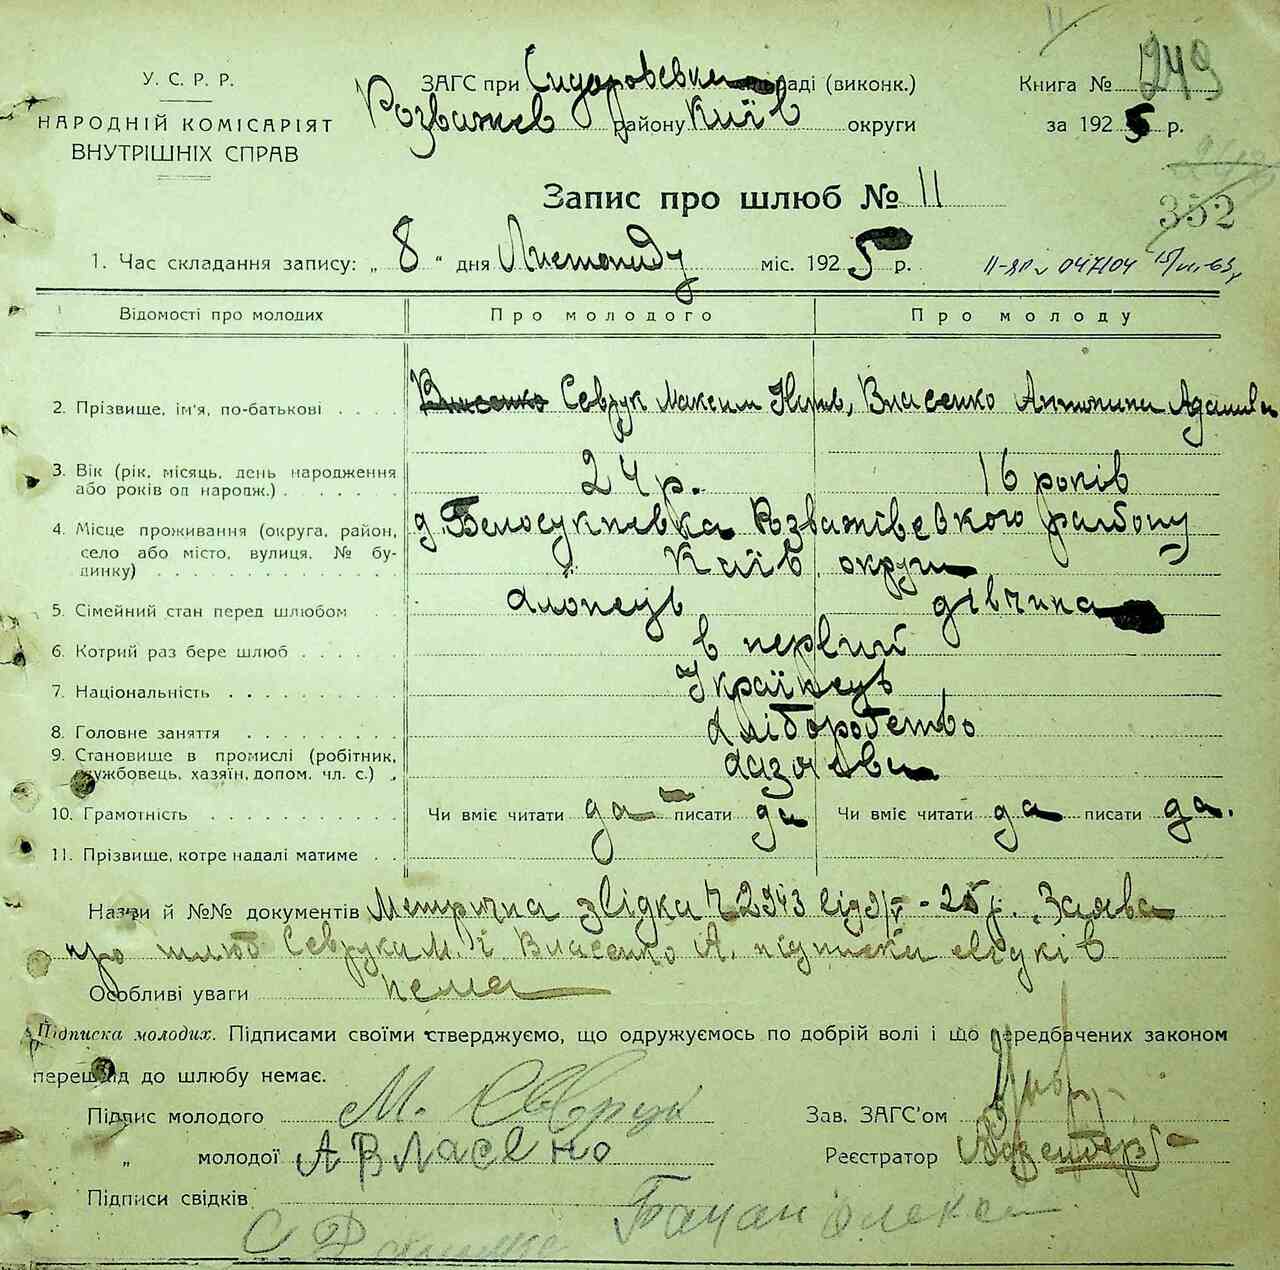 У. С. Р. Р.
НАРОДНІЙ КОМІСАРІЯТ
ВНУТРІШНІХ СПРАВ
ЗАГС при Сидоровській раді (виконк.)
Розважев району Київ округи
Книга № 249
за 1925 р.
352
Запис про шлюб № 11
1. Час складання запису: „ 8 “ дня Листопаду міс. 1925 р.
II-ЯП № 047104
Відомості про молодих Про молодого Про молоду
2. Прізвище, ім'я, по-батькові . . . . Власенко Севрук Максим Власенко Антонина Адамівн
3. Вік (рік, місяць, день народження або років од нарадж.) . . . . . . 24 р. 16 років
4. Місце проживання (округа, район, село або місто, вулиця, № будинку) . . . . д. Белосукнєвка Розважівевкого району
Київ округи
5. Сімейний стан перед шлюбом . . . хлопець дівчина
6. Котрий раз бере шлюб . . . . . . в первий
7. Національність . . . . . . . . . Українець
8. Головне заняття . . . . . . . . . хліборобство
9. Становище в промислі (робітник, службовець, хазяїн, допом. чл. с.) .
10. Грамотність . . . . . . . . . . Чи вміє читати да писати да Чи вміє читати да писати да.
11. Прізвище, котре надалі матиме . .
Назви й №№ документів Метрична звідка Ч 2943 від 25 р. Заява
про шлюб Севрука М. і Власенко А. підписки свідків
Особливі уваги нема
Підписка молодих. Підписами своїми стверджуємо, що одружуємось по добрій волі і що передбачених законом
перешкід до шлюбу немає.
Підпис молодого М. Севрук Зав. ЗАГС'ом
„ молодої А Власено Реєстратор
Підписи свідків Бачан Олекса
С